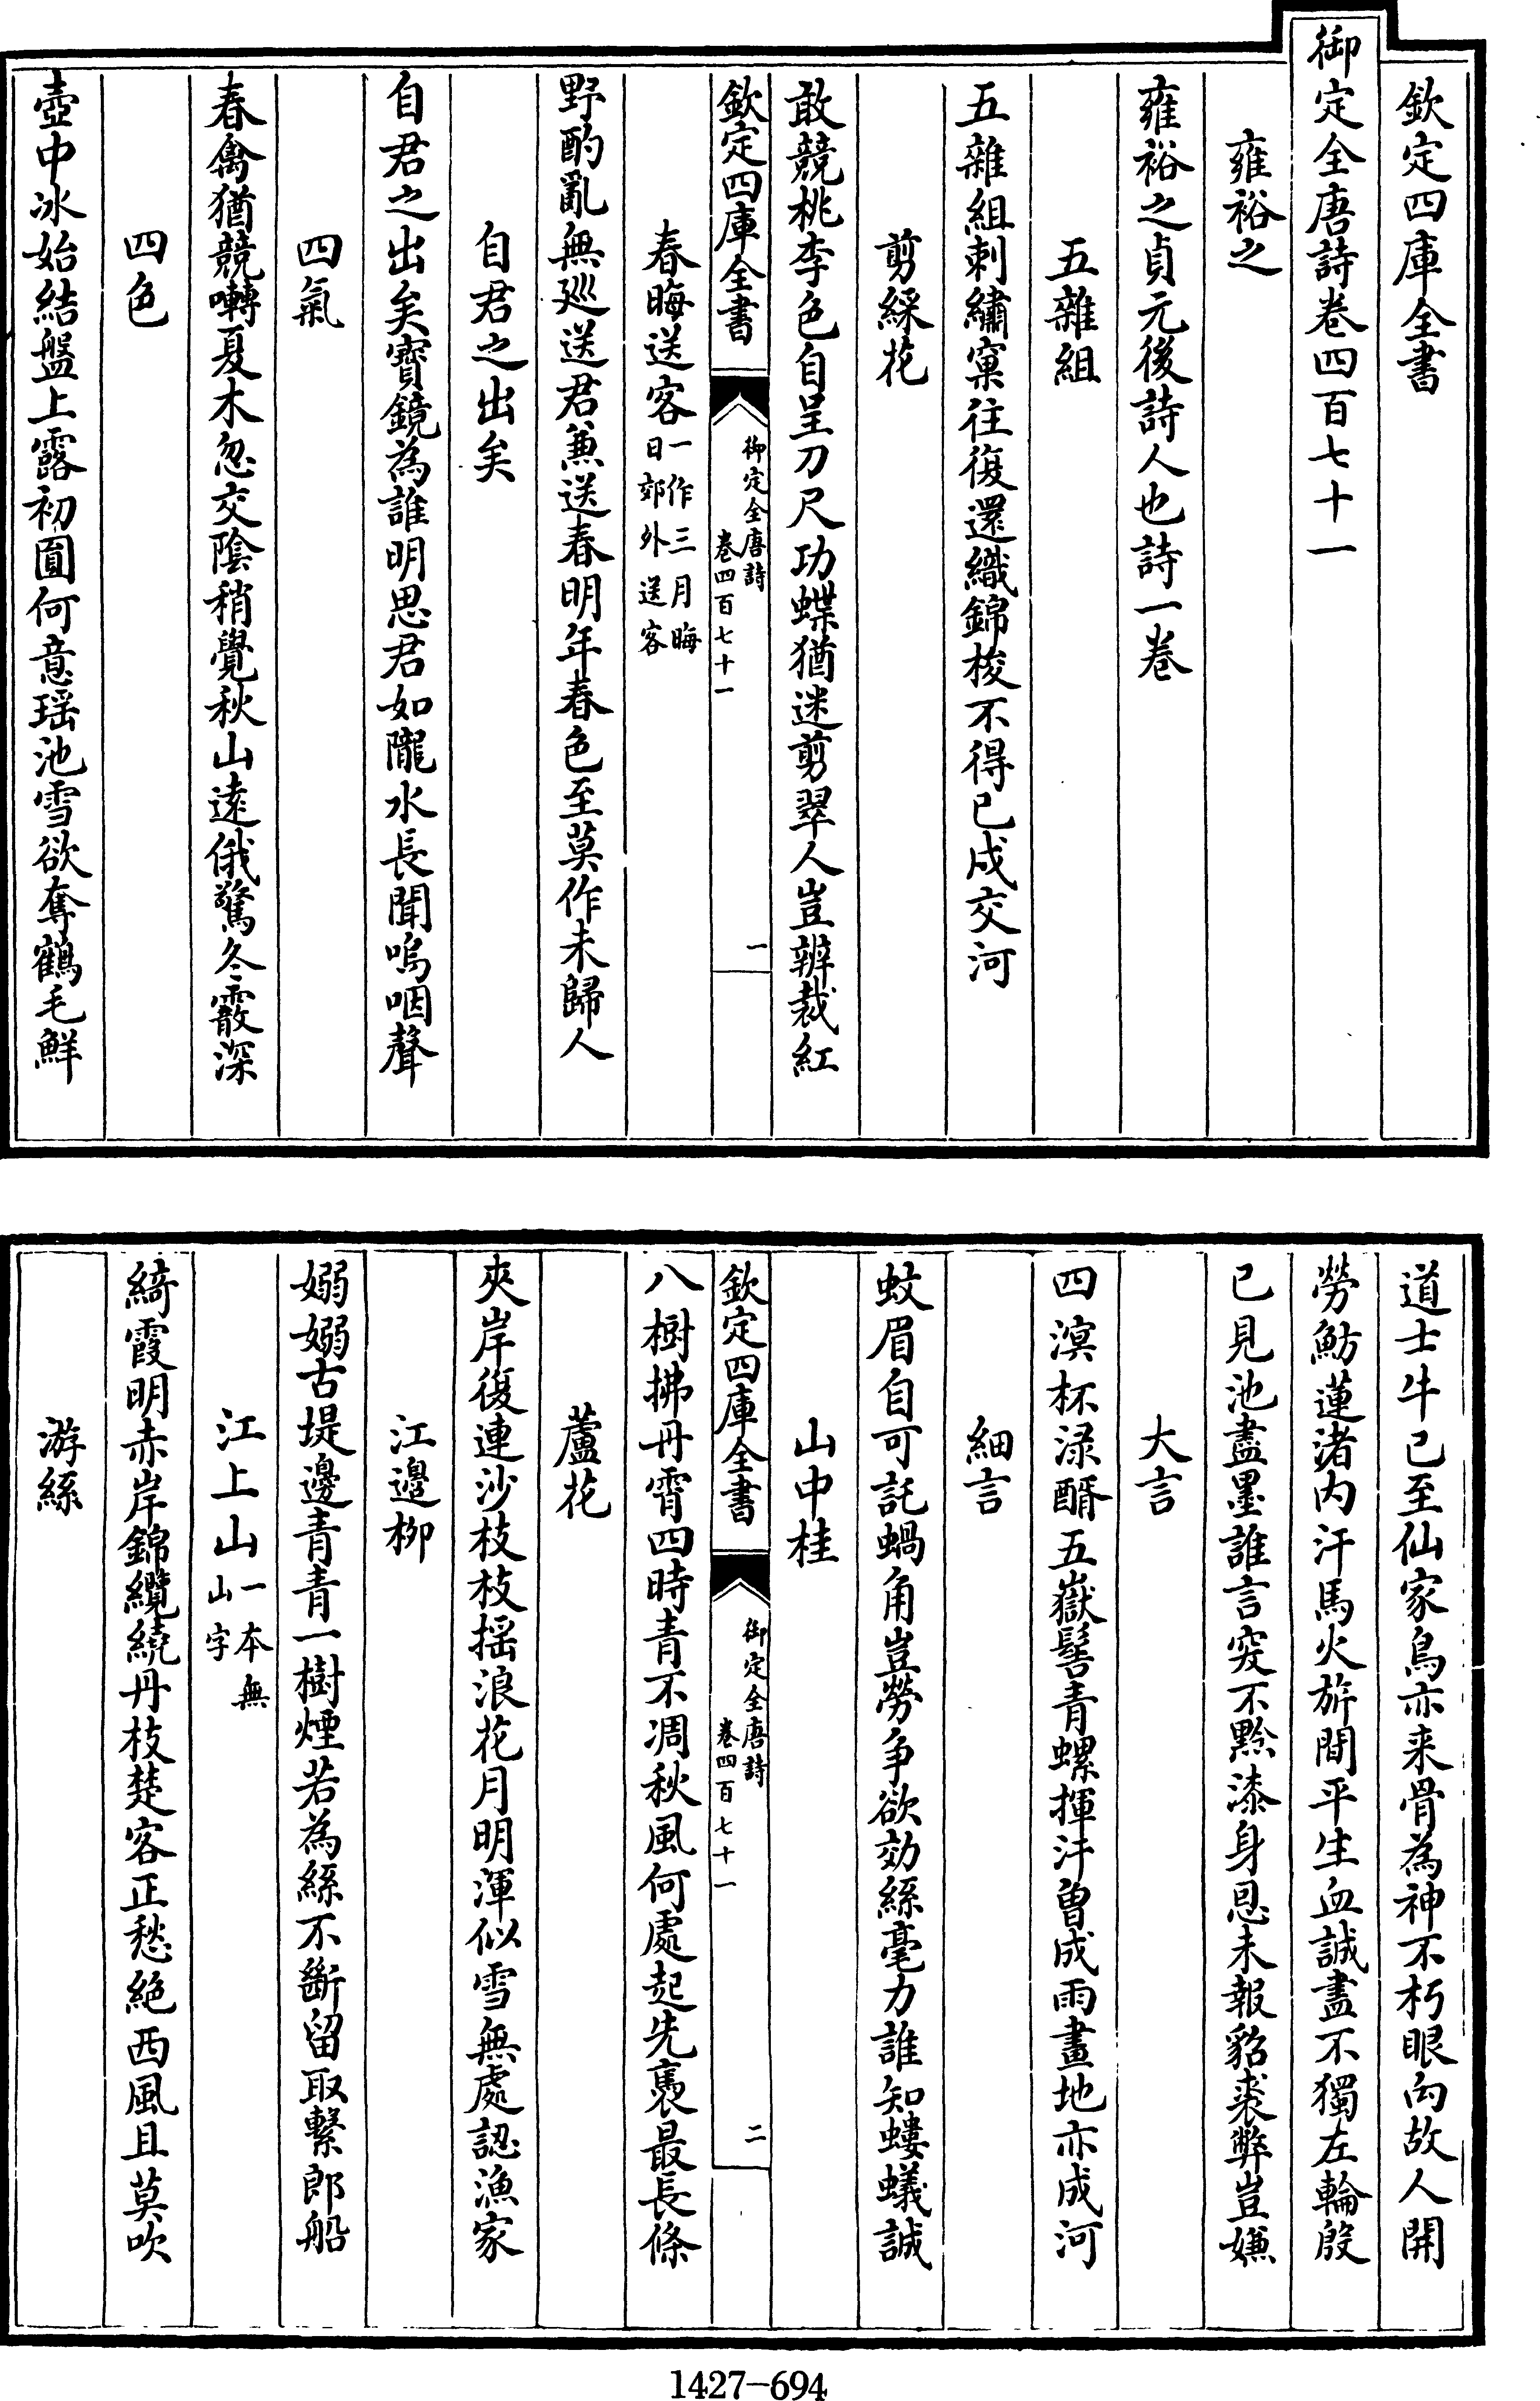 欽定四庫全書
御定全唐詩卷四百七十一
雍裕之
雍裕之貞元後詩人也詩一卷
五雜組
五雜組刺繡窠往復還織錦梭不得已戍交河
剪綵花
敢競桃李色自呈刀尺功蝶猶迷剪翠人豈辨裁紅
欽定四庫全書
御定全唐詩
卷四百七十一
一
春晦送客一作三月晦
日郊外送客
野酌亂無巡送君兼送春明年春色至莫作未歸人
自君之出矣
自君之出矣寶鏡為誰明思君如隴水長聞嗚咽聲
四氣
春禽猶競囀夏木忽交陰稍覺秋山遠俄驚冬霰深
四色
壺中冰始結盤上露初圓何意瑶池雪欲奪鶴毛鮮
道士牛已至仙家鳥亦来骨為神不朽眼向故人開
勞魴蓮渚内汗馬火旂間平生血誠盡不獨左輪殷
已見池盡墨誰言突不黔漆身恩未報貂裘弊豈嫌
大言
四溟杯渌醑五嶽髻青螺揮汗曾成雨畫地亦成河
細言
蚊眉自可託蝸角豈勞争欲効絲毫力誰知螻蟻誠
山中桂
八樹拂丹霄四時青不凋秋風何處起先裊最長條
欽定四庫全書
御定全唐詩
卷四百七十一
二
蘆花
夾岸復連沙枝枝揺浪花月明渾似雪無處認漁家
江邊栁
嫋嫋古堤邊青青一樹煙若為絲不斷留取繫郎船
江上山一本無
山字
綺霞明赤岸錦纜繞丹枝楚客正愁絶西風且莫吹
游絲
1427-694